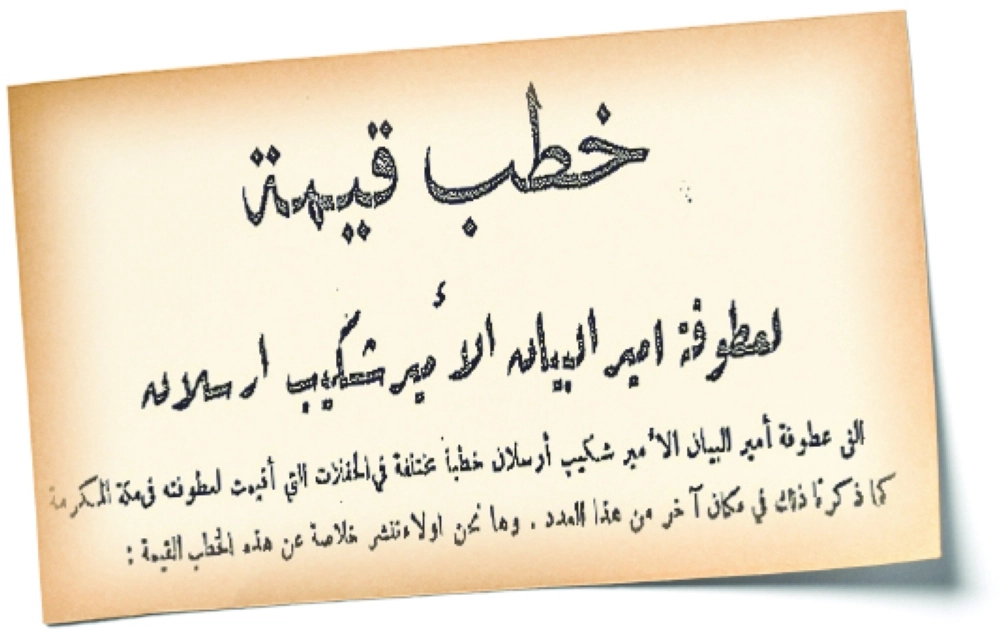 خطب قيمة
لعطوفة امير البيان الأمير شكيب ارسلان
القى عطوفة أمير البيان الأمير شكيب أرسلان خطباً مختلفة في الحفلات التي أقيمت لعطوفته في مكة المكرمة
كما ذكرنا ذلك في مكان آخر من هذا العدد . وها نحن اولاء ننشر خلاصة عن هذه الخطب القيمة :